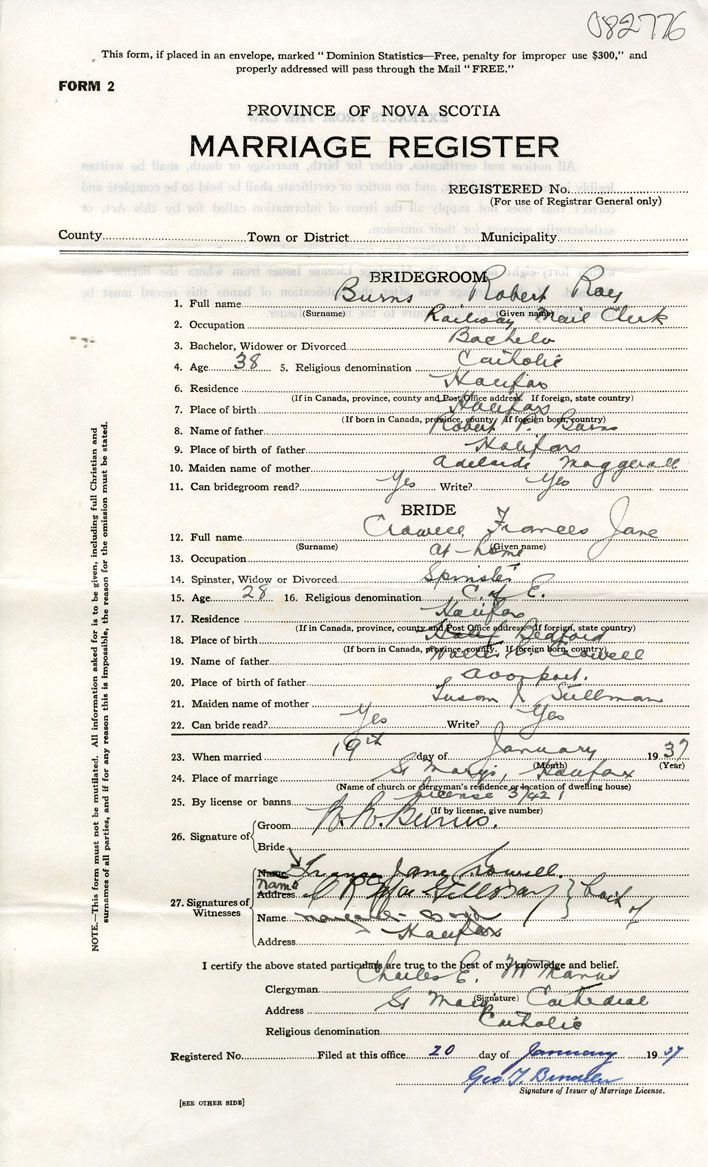 082776
This form, if placed in an envelope, marked "Dominion Statistics—Free, penalty for improper use $300," and
properly addressed will pass through the Mail "FREE."
FORM 2
PROVINCE OF NOVA SCOTIA
MARRIAGE REGISTER
REGISTERED No.
(For use of Registrar General only)
County Town or District Municipality
BRIDEGROOM
1. Full name Burns Robert Roy
(Surname) (Given name)
2. Occupation Railway Mail Clerk
3. Bachelor, Widower or Divorced Bachelor
4. Age 38 5. Religious denomination Catholic
6. Residence Halifax
(If in Canada, province, county and Post Office address. If foreign, state country)
7. Place of birth Halifax
(If born in Canada, province, county. If foreign born, country)
8. Name of father Robert P. Burns
9. Place of birth of father Halifax
10. Maiden name of mother Adelaide
11. Can bridegroom read? Yes Write? Yes
BRIDE
12. Full name Crowell Frances Jane
(Surname) (Given name)
13. Occupation at-home
14. Spinster, Widow or Divorced Spinster
15. Age 28 16. Religious denomination C. of E.
17. Residence Halifax
(If in Canada, province, county and Post Office address. If foreign, state country)
18. Place of birth Bedford
(If born in Canada, province, county. If foreign born, country)
19. Name of father Crowell
20. Place of birth of father Avonport.
21. Maiden name of mother Susan
22. Can bride read? Yes Write? Yes
23. When married 19th day of January 1937
(Month) (Year)
24. Place of marriage St Marys, Halifax
(Name of church or clergyman's residence or location of dwelling house)
25. By license or banns License
(If by license, give number)
26. Signature of Groom R. R. Burns.
Bride
Name Frances Jane Crowell.
27. Signatures of Witnesses Name Address both of
Name
Address Halifax
I certify the above stated particulars are true to the best of my knowledge and belief.
Clergyman Charles E.
(Signature)
Address St Mary's Cathedral
Religious denomination Catholic
Registered No. Filed at this office 20 day of January 1937
Geo. T.
Signature of Issuer of Marriage License.
[SEE OTHER SIDE]
NOTE.—This form must not be mutilated. All information asked for is to be given, including full Christian and
surnames of all parties, and if for any reason this is impossible, the reason for the omission must be stated.